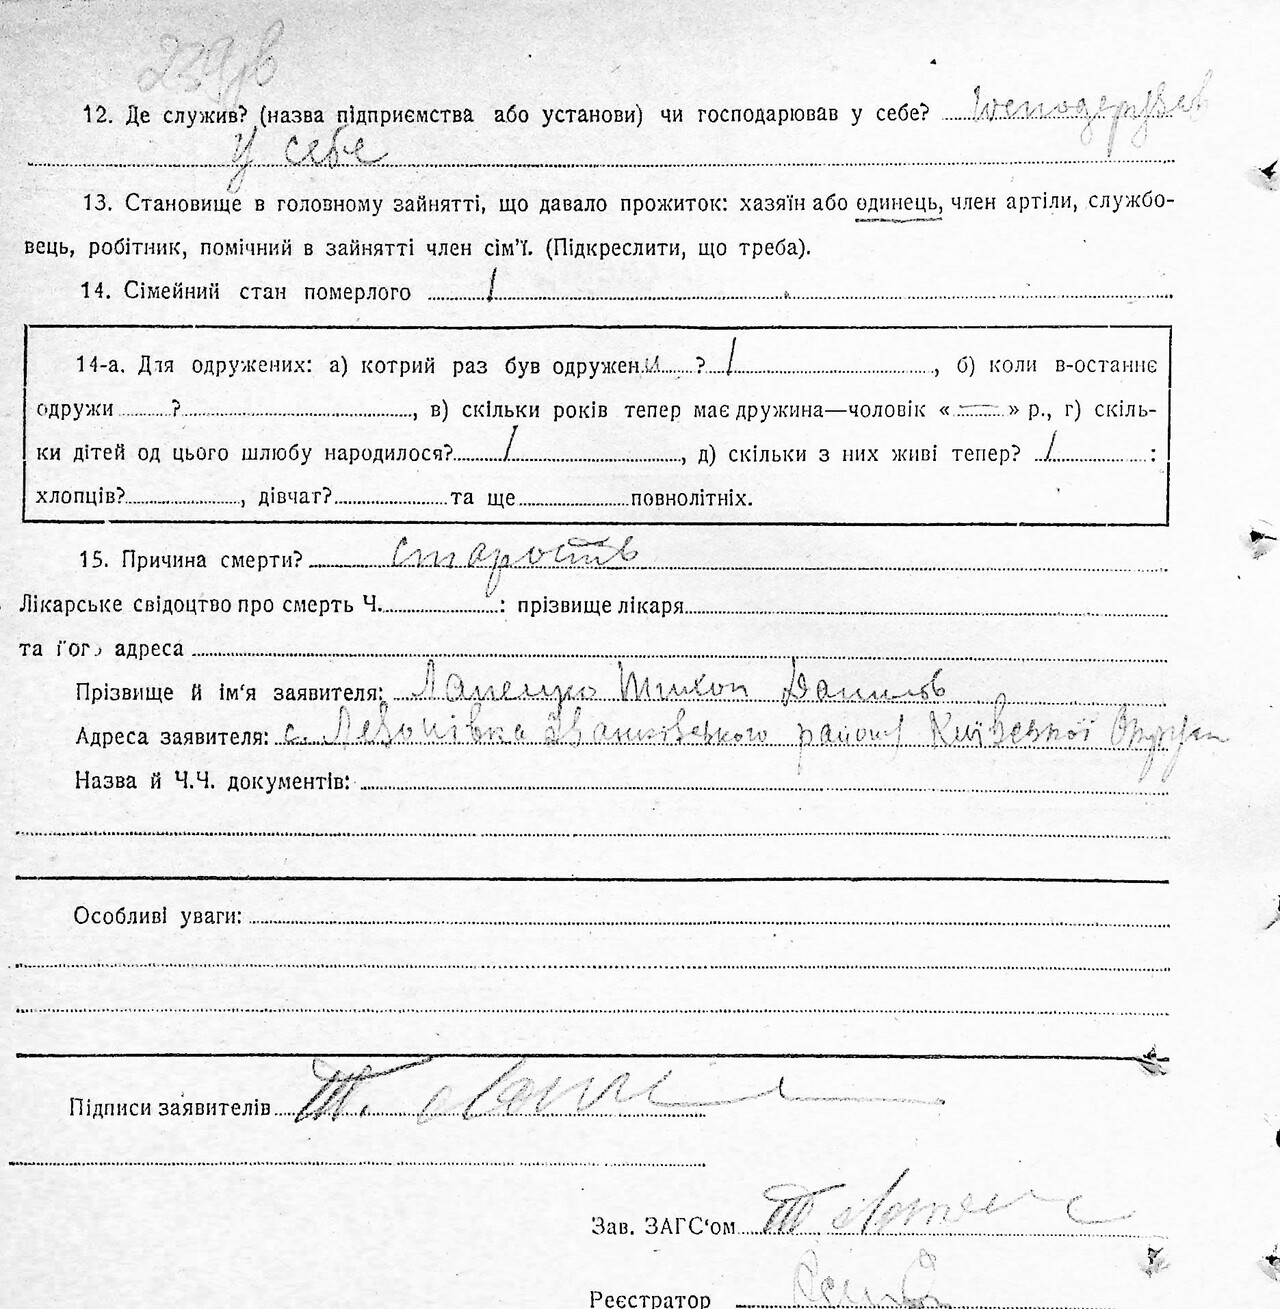 239зв
12. Де служив? (назва підприємства або установи) чи господарював у себе? господарував
у себе
13. Становище в головному зайнятті, що давало прожиток: хазяїн або одинець, член артіли, службо-
вець, робітник, помічний в зайнятті член сім’ї. (Підкреслити, що треба).
14. Сімейний стан померлого /
14-а. Для одружених: а) котрий раз був одружений ? /, б) коли в-останнє
одружи ?, в) скільки років тепер має дружина—чоловік « — » р., г) скіль-
ки дітей од цього шлюбу народилося? /, д) скільки з них живі тепер? / :
хлопців?, дівчат? та ще повнолітніх.
15. Причина смерти? старость
Лікарське свідоцтво про смерть Ч. : прізвище лікаря
та його адреса
Прізвище й ім‘я заявителя: Тихон Данилов
Адреса заявителя: с. району Київської Округи
Назва й Ч.Ч. документів:
Особливі уваги:
Підписи заявителів Т.
Зав. ЗАГС‘ом Т
Реєстратор